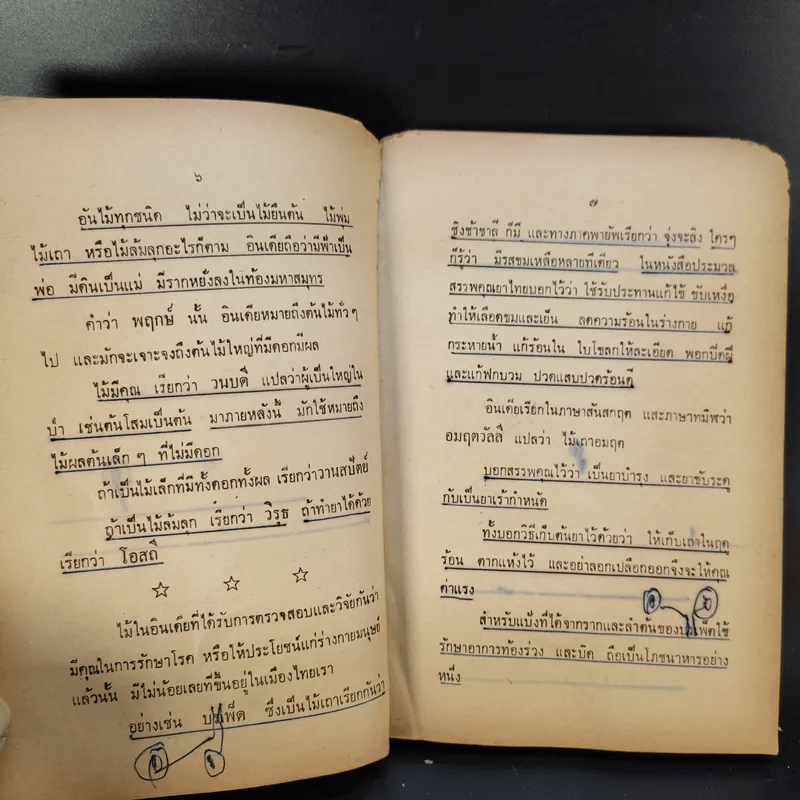 ๖
อันไม้ทุกชนิด ไม่ว่าจะเป็นไม้ยืนต้น ไม้พุ่ม
ไม้เถา หรือไม้ล้มลุกอะไรก็ตาม อินเดียถือว่ามีฟ้าเป็น
พ่อ มีดินเป็นแม่ มีรากหยั่งลงในท้องมหาสมุทร
คำว่า พฤกษ์ นั้น อินเดียหมายถึงต้นไม้ทั่วๆ
ไป และมักจะเจาะจงถึงต้นไม้ใหญ่ที่มีดอกมีผล
ไม้มีคุณ เรียกว่า วนบดี แปลว่าผู้เป็นใหญ่ใน
ป่า เช่นต้นโสมเป็นต้น มาภายหลังนี้ มักใช้หมายถึง
ไม้ผลต้นเล็กๆ ที่ไม่มีดอก
ถ้าเป็นไม้เล็กที่มีทั้งดอกทั้งผล เรียกว่าวานสปัตย์
ถ้าเป็นไม้ล้มลุก เรียกว่า วิรุธ ถ้าทำยาได้ด้วย
เรียกว่า โอสถี
ไม้ในอินเดียที่ได้รับการตรวจสอบและวิจัยกันว่า
มีคุณในการรักษาโรค หรือให้ประโยชน์แก่ร่างกายมนุษย์
แล้วนั้น มีไม่น้อยเลยที่ขึ้นอยู่ในเมืองไทยเรา
อย่างเช่น บรเพ็ด ซึ่งเป็นไม้เถาเรียกกันว่า
๗
ชิงช้าชาลี ก็มี และทางภาคพายัพเรียกว่า จุ่งจะลิง ใครๆ
ก็รู้ว่า มีรสขมเหลือหลายทีเดียว ในหนังสือประมวล
สรรพคุณยาไทยบอกไว้ว่า ใช้รับประทานแก้ไข้ ขับเหงื่อ
ทำให้เลือดขมและเย็น ลดความร้อนในร่างกาย แก้
กระหายน้ำ แก้ร้อนใน ใบโขลกให้ละเอียด พอกปิดฝี
และแก้ฟกบวม ปวดแสบปวดร้อนดี
อินเดียเรียกในภาษาสันสกฤต และภาษาทมิฬว่า
อมฤตวัลลี แปลว่า ไม้เถาอมฤต
บอกสรรพคุณไว้ว่า เป็นยาบำรุง และยาขับระดู
กับเป็นยาเร้ากำหนัด
ทั้งบอกวิธีเก็บต้นยาไว้ด้วยว่า ให้เก็บเถาในฤดู
ร้อน ตากแห้งไว้ และอย่าลอกเปลือกออกจึงจะให้คุณ
ค่าแรง
สำหรับแป้งที่ได้จากรากและลำต้นของบรเพ็ดใช้
รักษาอาการท้องร่วง และบิด ถือเป็นโภชนาหารอย่าง
หนึ่ง